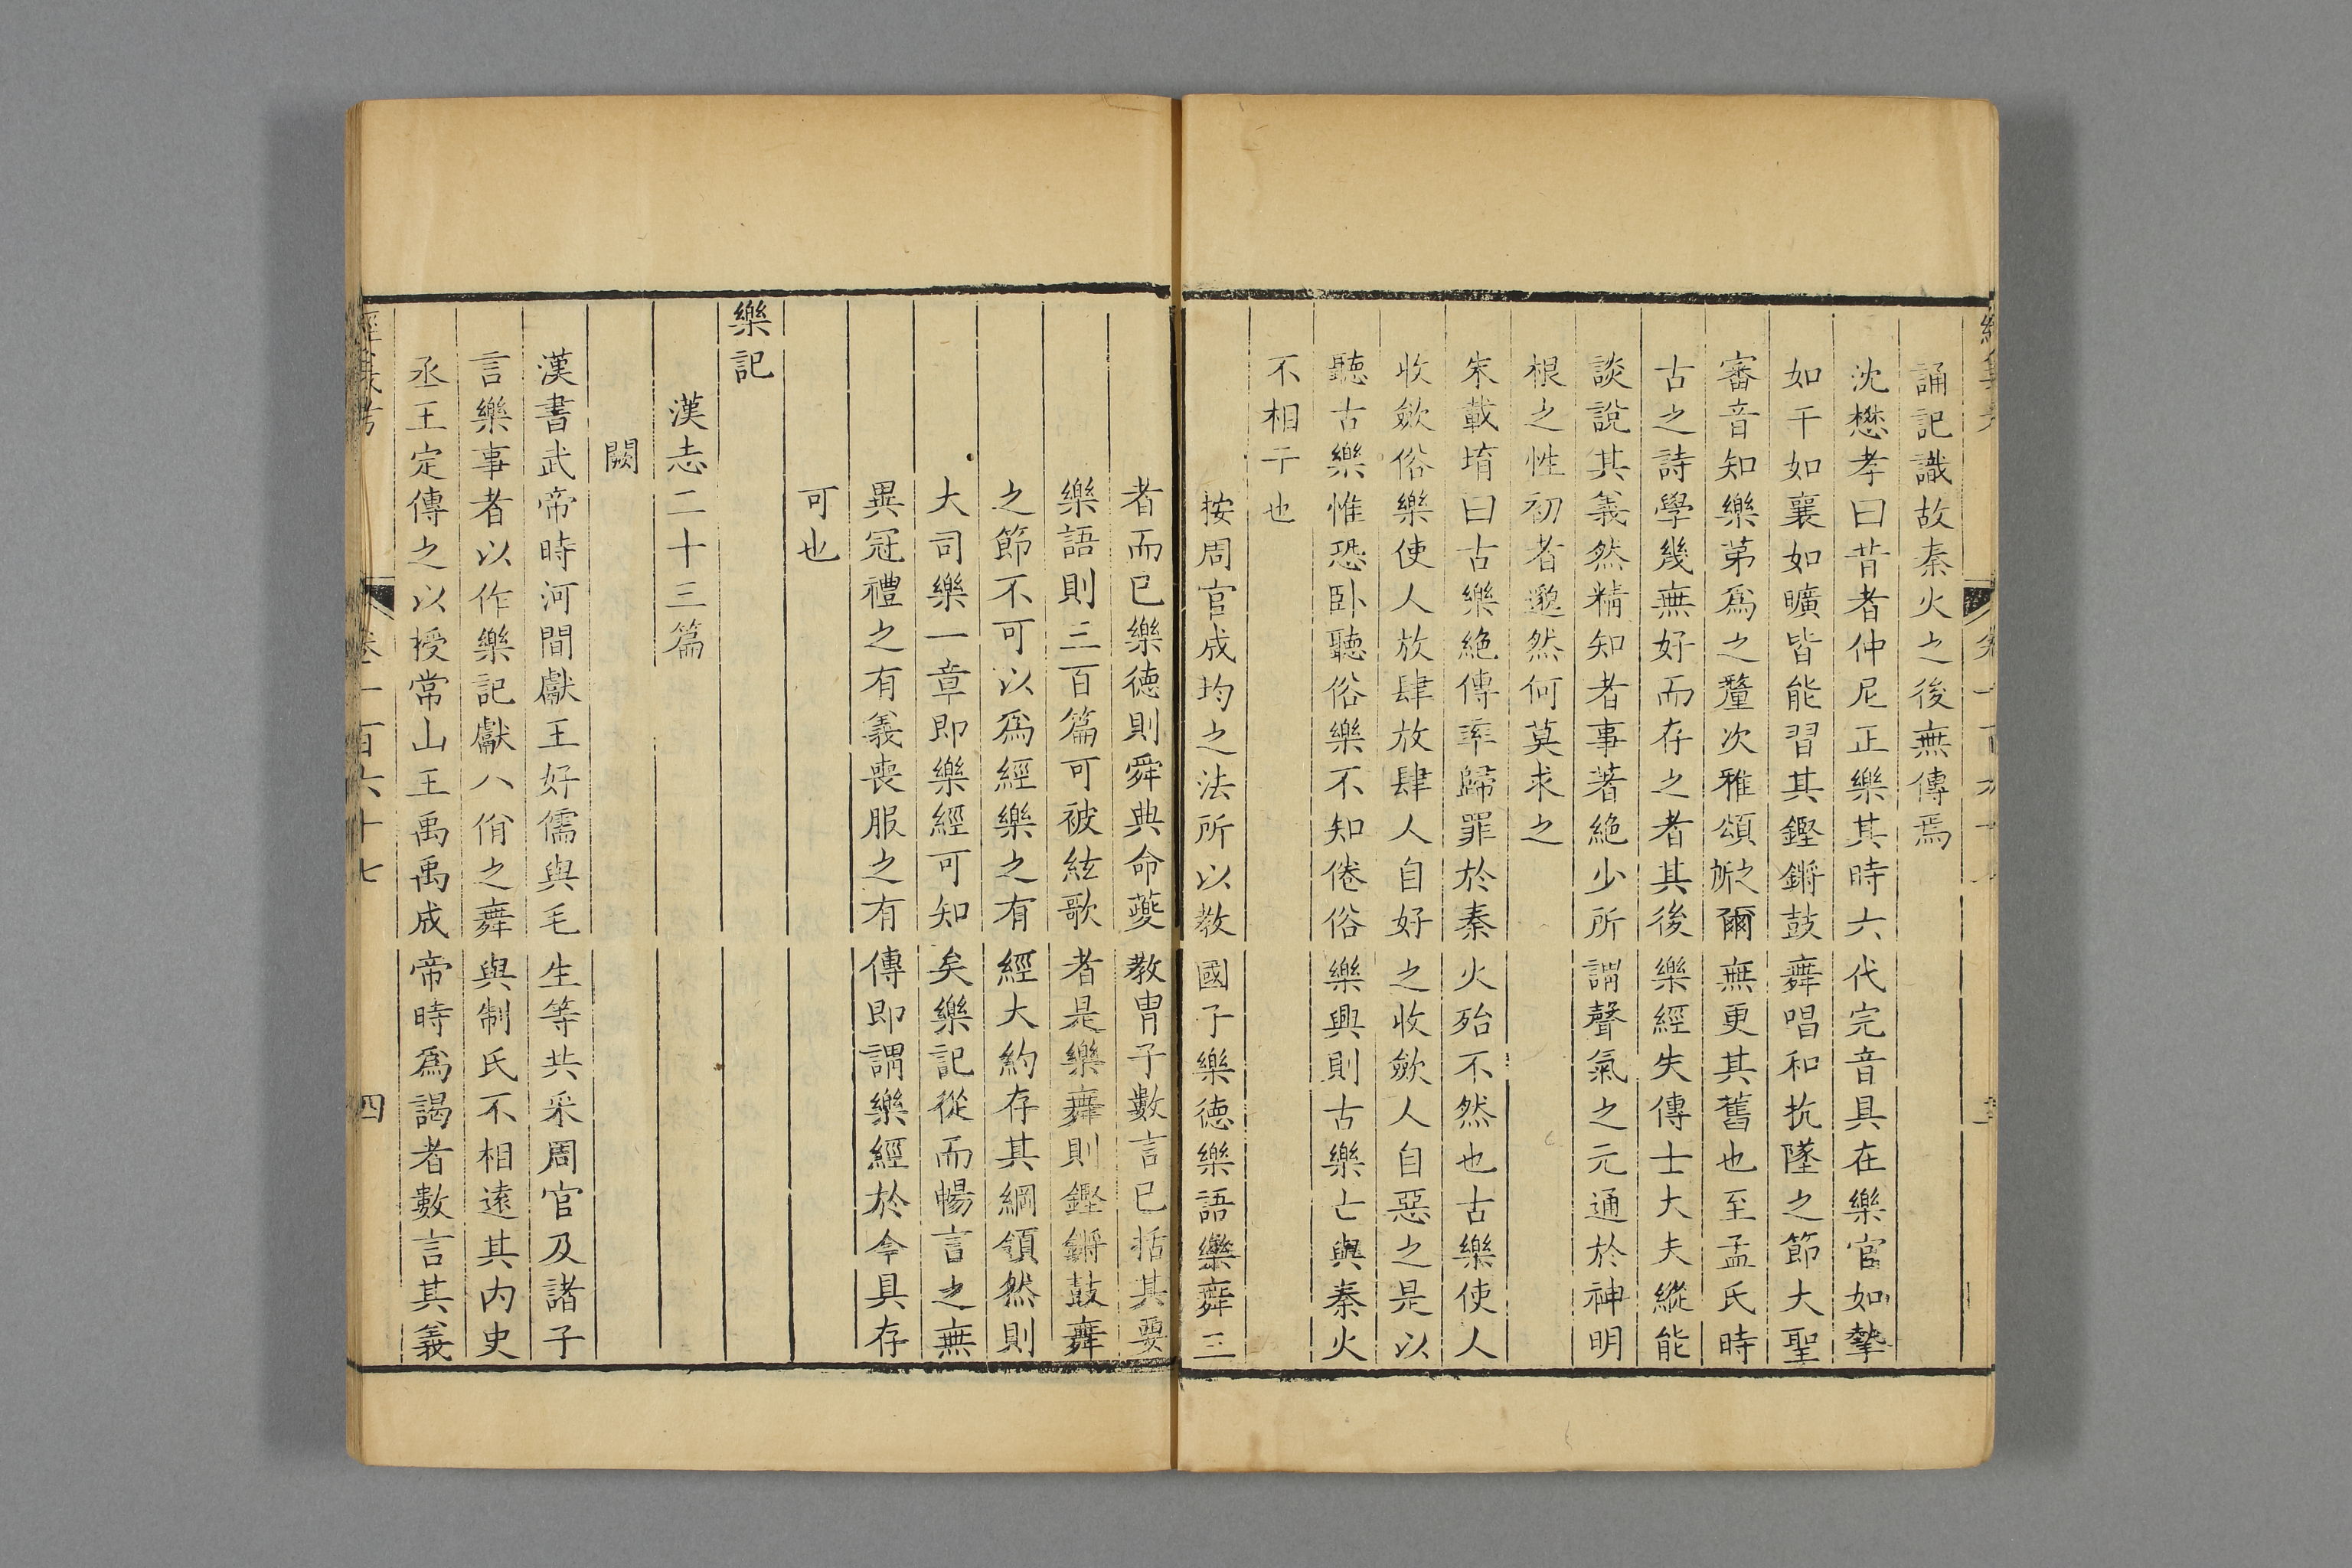 誦記識故秦火之後無傳焉
沈懋孝曰昔者仲尼正樂其時六代完音具在樂官如摯
如干如襄如曠皆能習其鏗鏘鼓舞唱和抗墜之節大聖
審音知樂第爲之釐次雅頌之斨爾無更其舊也至孟氏時
古之詩學幾無好而存之者其後樂經失傳士大夫縱能
談說其義然精知者事著絶少所謂聲氣之元通於神明
根之性初者邈然何莫求之
朱載堉曰古樂絶傳率歸罪於秦火殆不然也古樂使人
收斂俗樂使人放肆放肆人自好之收斂人自惡之是以
聽古樂惟恐卧聽俗樂不知倦俗樂興則古樂亡與秦火
不相干也
按周官成均之法所以教國子樂德樂語樂舞三
者而已樂德則舜典命夔教胄子數言已括其要
樂語則三百篇可被絃歌者是樂舞則鏗鏘鼓舞
之節不可以爲經樂之有經大約存其綱領然則
大司樂一章即樂經可知矣樂記從而暢言之無
異冠禮之有義喪服之有傳即謂樂經於今具存
可也
樂記
漢志二十三篇
闕
漢書武帝時河間獻王好儒與毛生等共采周官及諸子
言樂事者以作樂記獻八佾之舞與制氏不相遠其内史
丞王定傳之以授常山王禹禹成帝時爲謁者數言其義
經義考
卷一百六十七
四